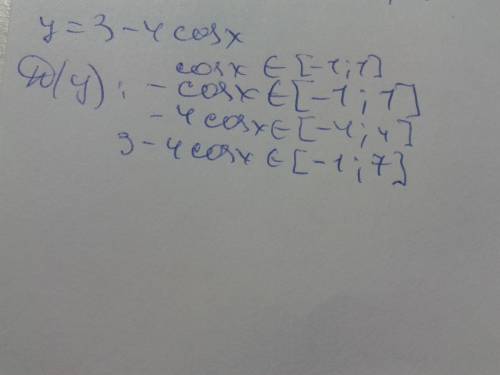 y = 3 - 4 cosx
D(y): cosx ∈ [-1; 1]
- cosx ∈ [-1; 1]
- 4 cosx ∈ [-4; 4]
3 - 4 cosx ∈ [-1; 7]